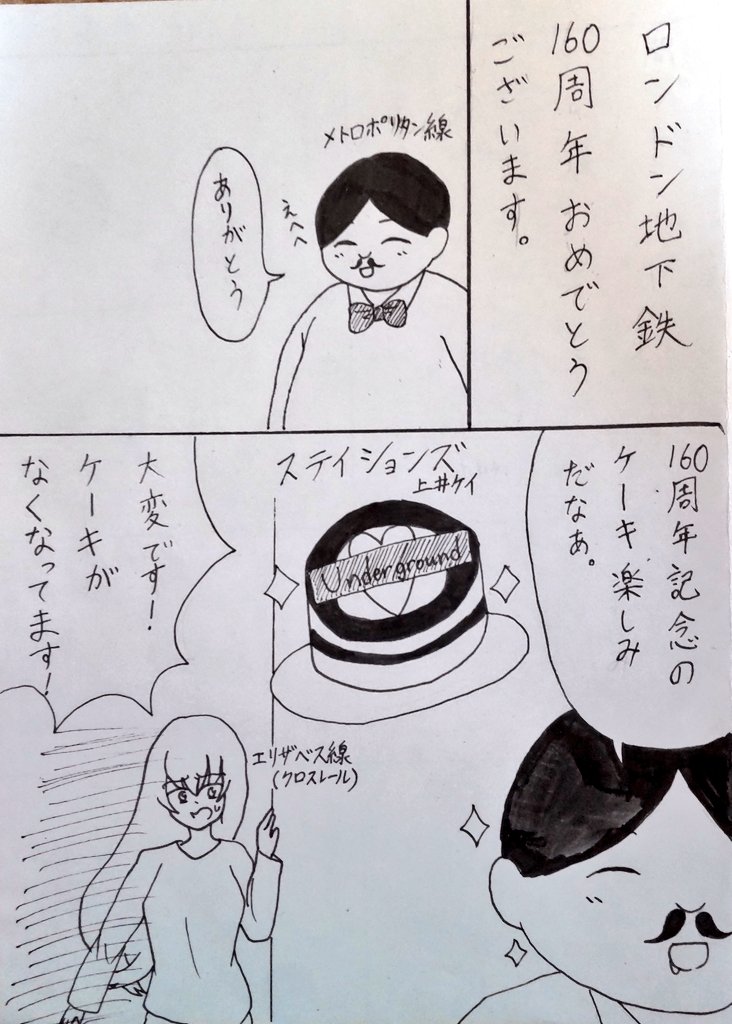 ロンドン地下鉄
160周年おめでとう
ございます。
メトロポリタン線
えへへ
ありがとう
160周年記念の
ケーキ楽しみ
だなぁ。
ステイションズ
上井ケイ
Underground
大変です!
ケーキが
なくなってます!
エリザベス線
(クロスレール)